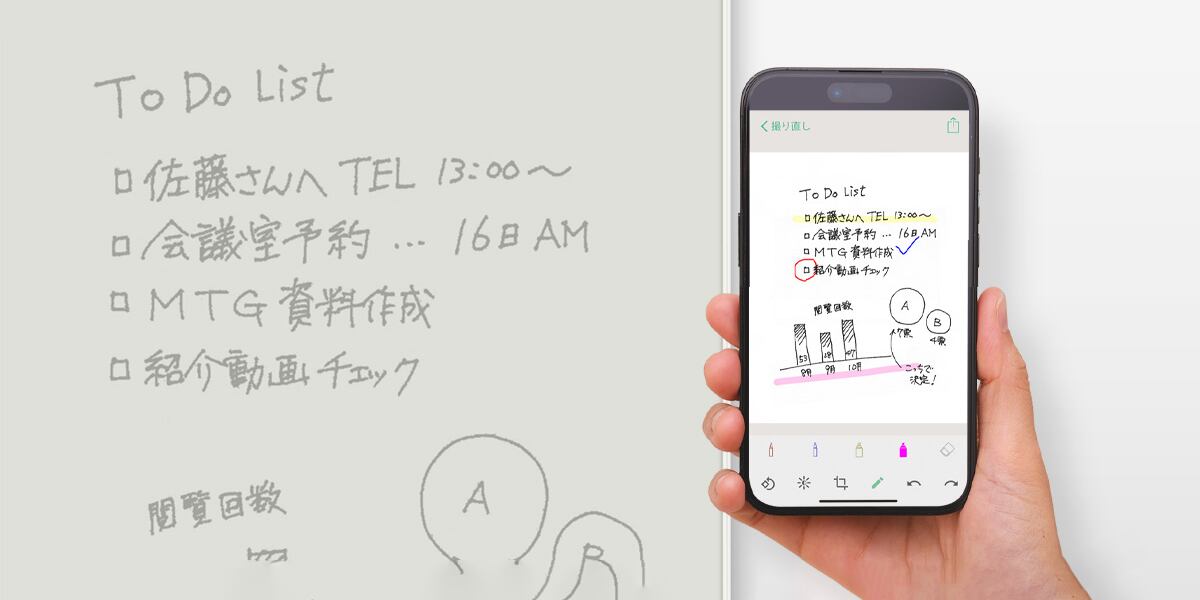 To Do List
□ 佐藤さんへ TEL 13:00〜
□ 会議室予約 … 16日 AM
□ MTG 資料作成
□ 紹介動画チェック
閲覧回数
A
B
撮り直し
To Do List
□ 佐藤さんへ TEL 13:00〜
□ 会議室予約 … 16日 AM
□ MTG 資料作成
□ 紹介動画チェック
閲覧回数
A
B
17票
4票
53
28
47
8月 9月 10月
こっちで
決定!